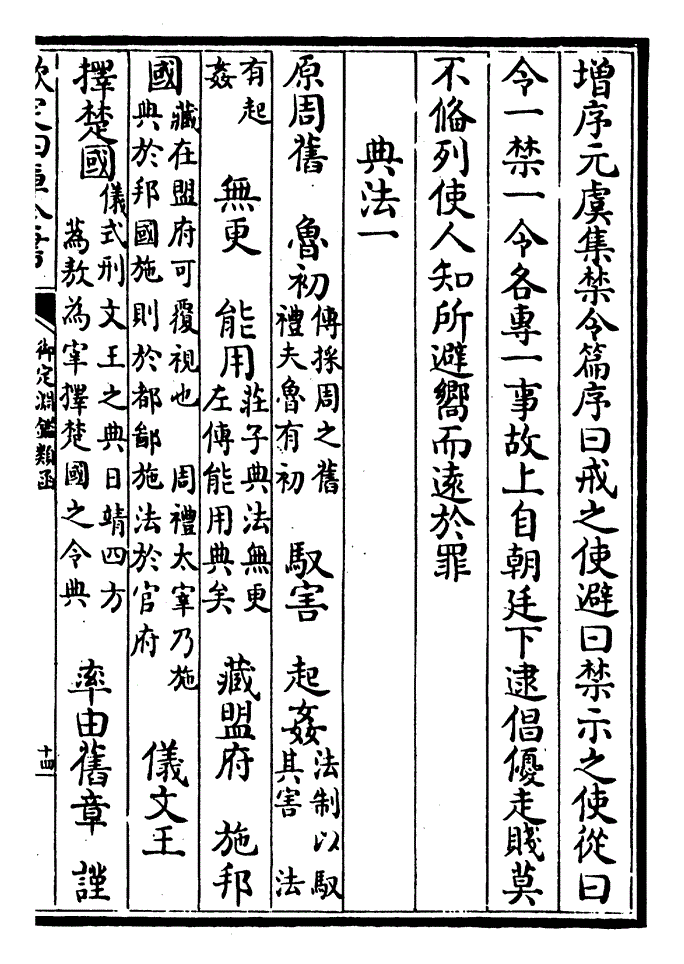 增序元虞集禁令篇序曰戒之使避曰禁示之使從曰
令一禁一令各專一事故上自朝廷下逮倡優走賤莫
不俻列使人知所避嚮而遠於罪
典法一
原周舊 魯初 傳採周之舊 禮夫魯有初 馭害 起姦 法制以馭 其害 法
有起 姦 無更 能用 莊子典法無更 左傳能用典矣 藏盟府 施邦
國 藏在盟府可覆視也 周禮太宰乃施 典於邦國施則於都鄙施法於官府 儀文王
擇楚國 儀式刑文王之典日靖四方 蒍敖為宰擇楚國之令典 率由舊章 謹
欽定四庫全書 御定淵鑑類函 十四